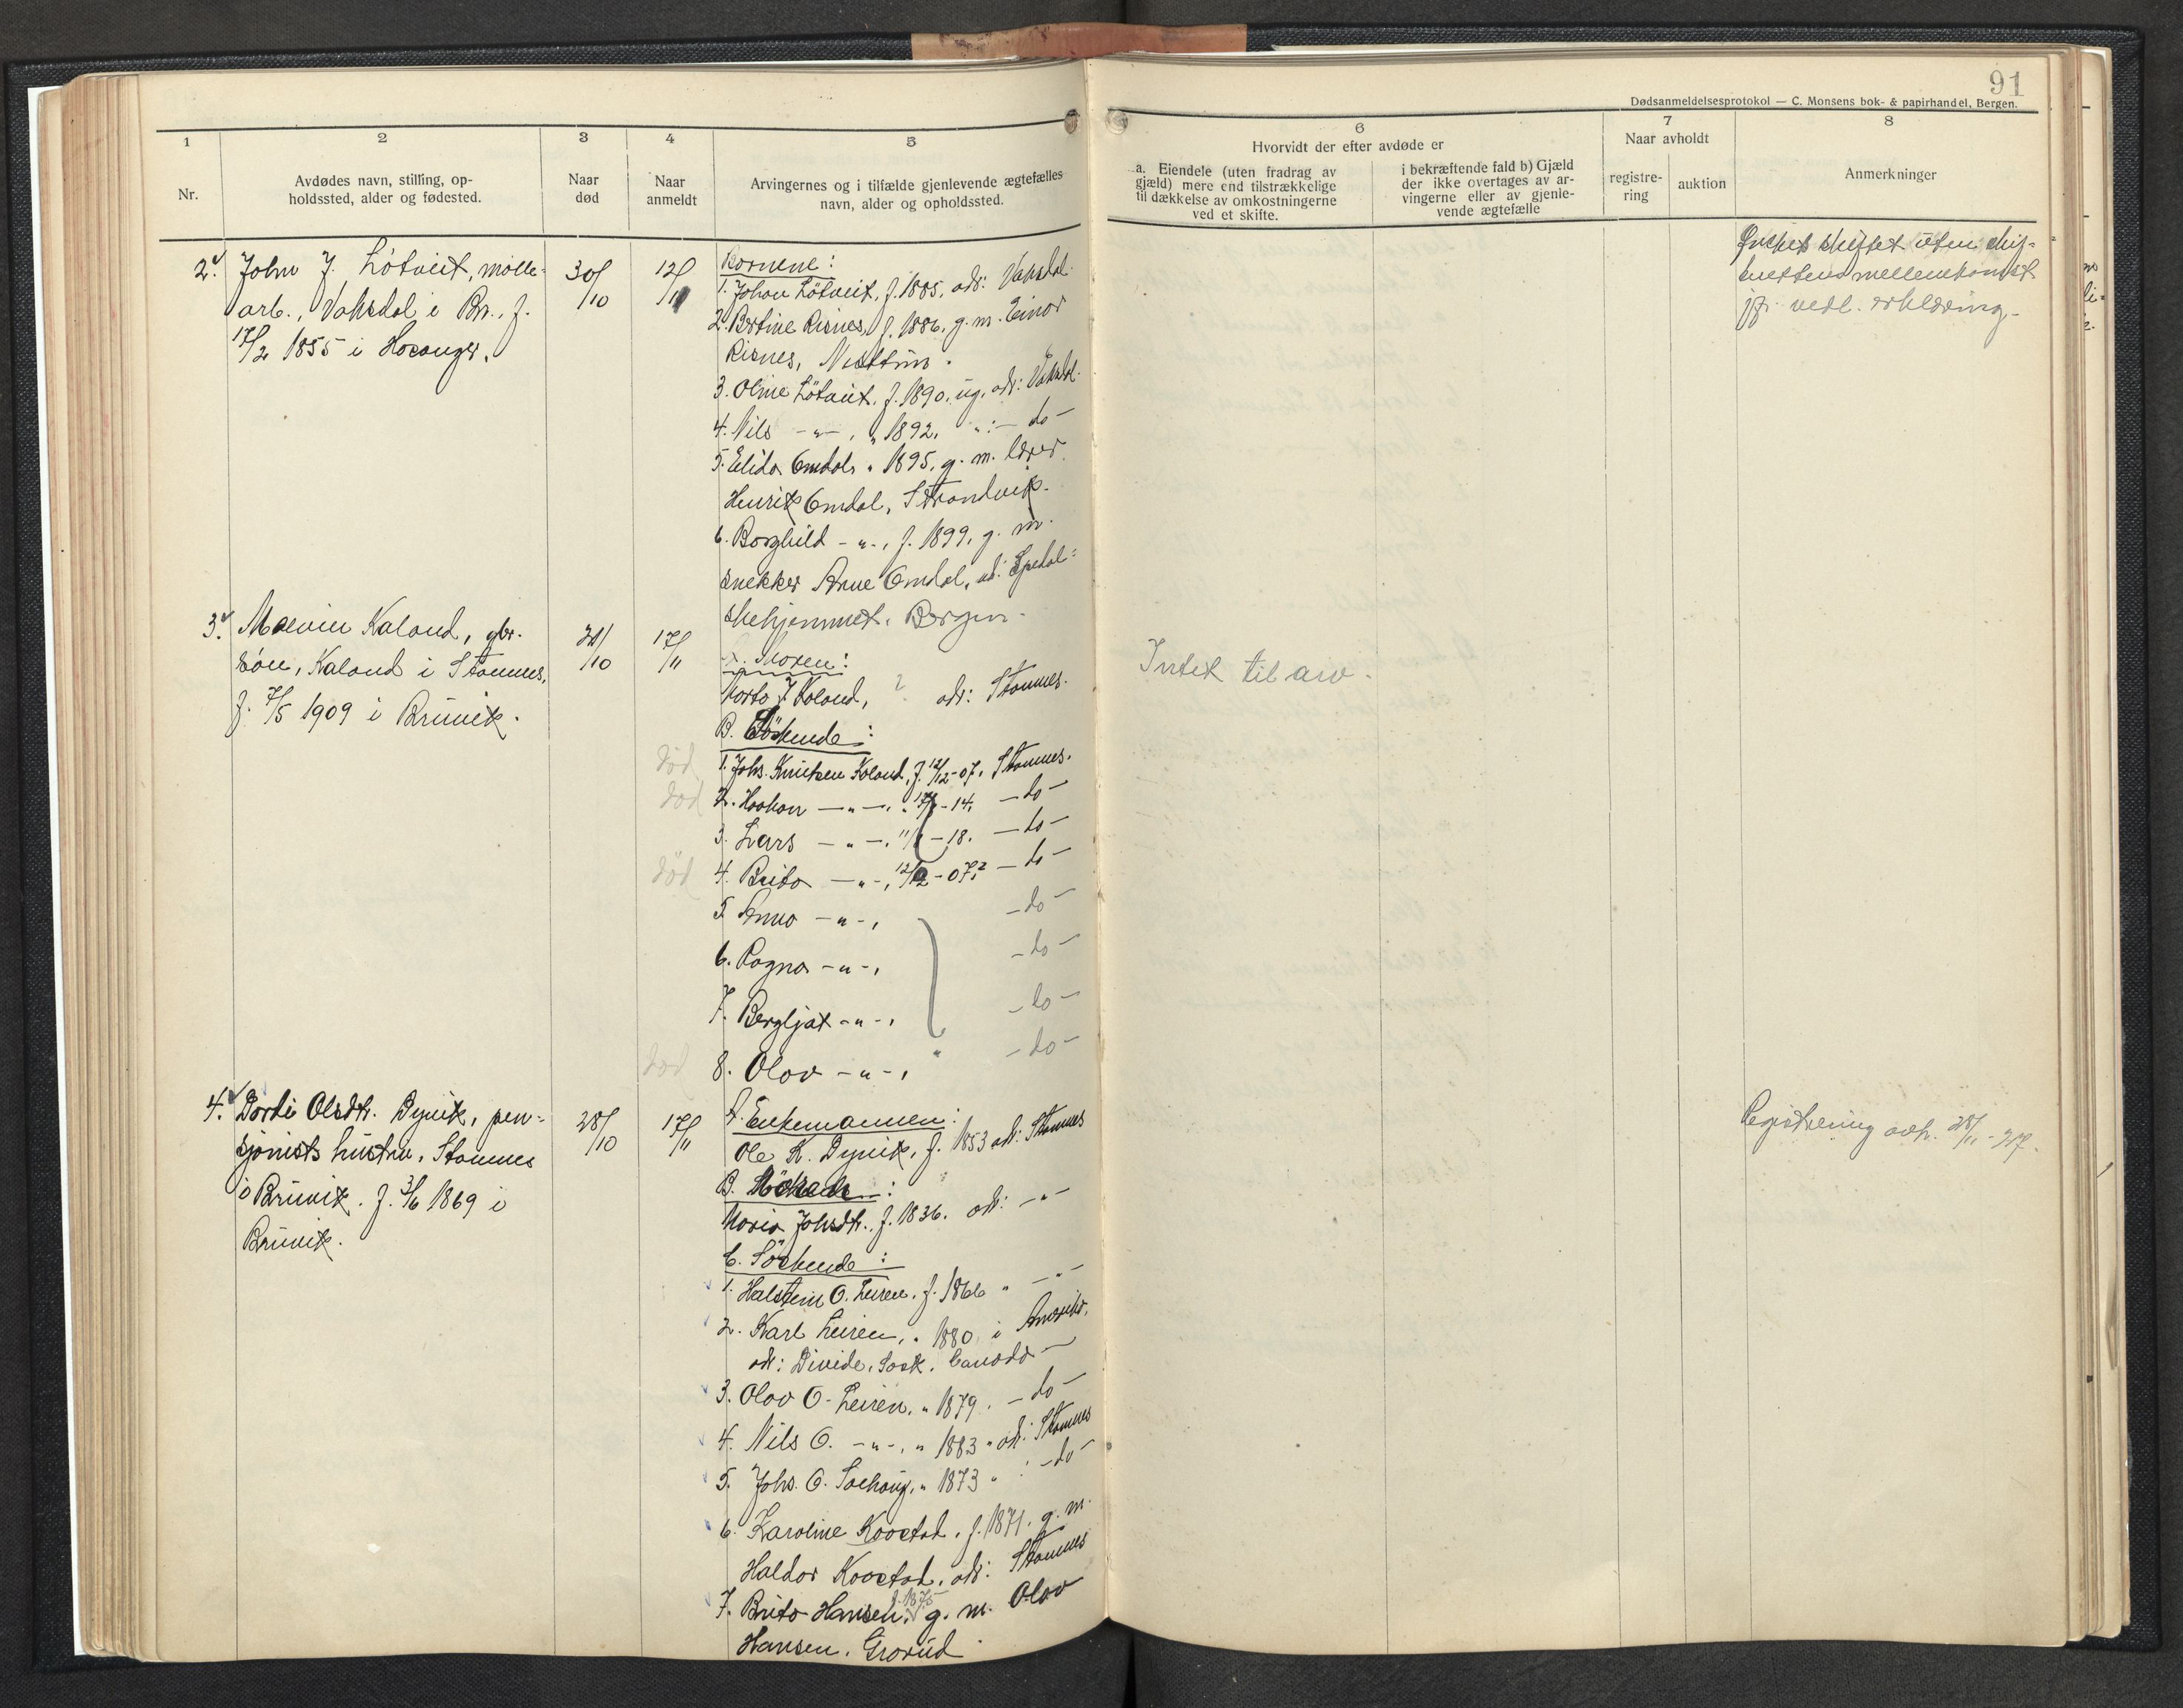 91
Dødsanmeldelsesprotokol — C. Monsens bok- & papirhandel, Bergen.
1
2
3
4
5
6
7
8
Nr.
Avdødes navn, stilling, op-
holdssted, alder og fødested.
Naar
død
Naar
anmeldt
Arvingernes og i tilfælde gjenlevende ægtefælles
navn, alder og opholdssted.
Hvorvidt der efter avdøde er
a. Eiendele (uten fradrag av
gjæld) mere end tilstrækkelige
til dækkelse av omkostningerne
ved et skifte.
i bekræftende fald b) Gjæld
der ikke overtages av ar-
vingerne eller av gjenle-
vende ægtefælle
Naar avholdt
registre-
ring
auktion
Anmerkninger
2. John J. Lötveit, mölle-
arb., Vaksdal i Br., f.
17/2 1855 i Hosanger.
30/10
12/11
Börnene:
1. Johan Lötveit, f. 1885, adr: Vaksdal.
2. Bertine Risnes, f. 1886, g. m. Einar
Risnes, Nesttun.
3. Oline Lötveit, f. 1890, ug. adr: Vaksdal.
4. Nils -"-, " 1892. " :- do -
5. Elida Omdal, " 1895, g. m. lærer
Henrik Omdal, Strandvik.
6. Borghild -"-, f. 1899, g. m.
snekker Arne Omdal, ad: Spedal-
skehjemmet, Bergen.
Ønsket skiftet uten skif-
terettens mellemkomst
jfr. vedl. erklæring.
3. Kaland, gbr.
sön, Kaland i Stamnes,
f. 7/5 1909 i Bruvik.
/10
17/11
A. Moren:
Marta J. Kaland, ? adr: Stamnes.
B. Söskende:
død 1. Johs. Knutsen Kaland, f. 12/12-07, Stamnes.
død 2. Haakon —"—, -14, — do —
3. Lars —"—, -18. — do —
død 4. Brita —"—, 12/12-07? — do —
5. Anna -"-, - do -
6. Ragna -"-, - do -
7. Bergljot -"-, - do -
død 8. Olav -"-, " - do -
Intet til arv.
4. Dorti Olsdtr. Dyvik, pen-
sjonists hustru, Stamnes
i Bruvik. f. 3/6 1869 i
Bruvik.
28/10
17/11
A. Enkemannen:
Ole K. Dyvik, f. 1853 adr: Stamnes
B.
Maria Johsdtr., f. 1836. adr: -"-
C. Söskende:
1. Halstein O. Leiren, f. 1866 " -"-
2. Karl Leiren, " 1880, i Amerika,
adr: Divide, Sask. Canada —
3. Olav O. Leiren, " 1879. - do -
4. Nils O. -"-, " 1883 " adr: Stamnes
5. Johs. O. " 1873 " : - do -
6. Karoline f. 1871, g. m.
Haldor adr: Stamnes
7. Brita Hansen, f. 1875 g. m. Olav
Hansen, Grorud.
Registrering avh. 28/11-27.